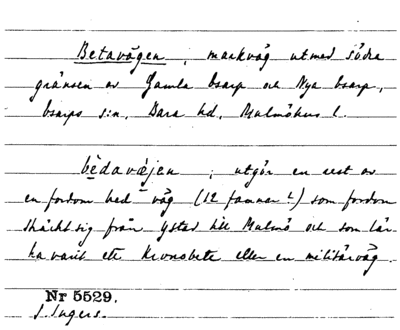 Betavägen, markväg utmed södra
gränsen av Gamla bsarp och Nya bsarp,
bsarps s:n, Bara hd, Malmöhus l.
bèdavæjen; utgör en rest av
en fordom bred väg (12 famnar?) som fordom
sträckt sig från Ystad till Malmö och som lär
ha varit ett Kronobete eller en militärväg.
Nr 5529.
I. Ingers.